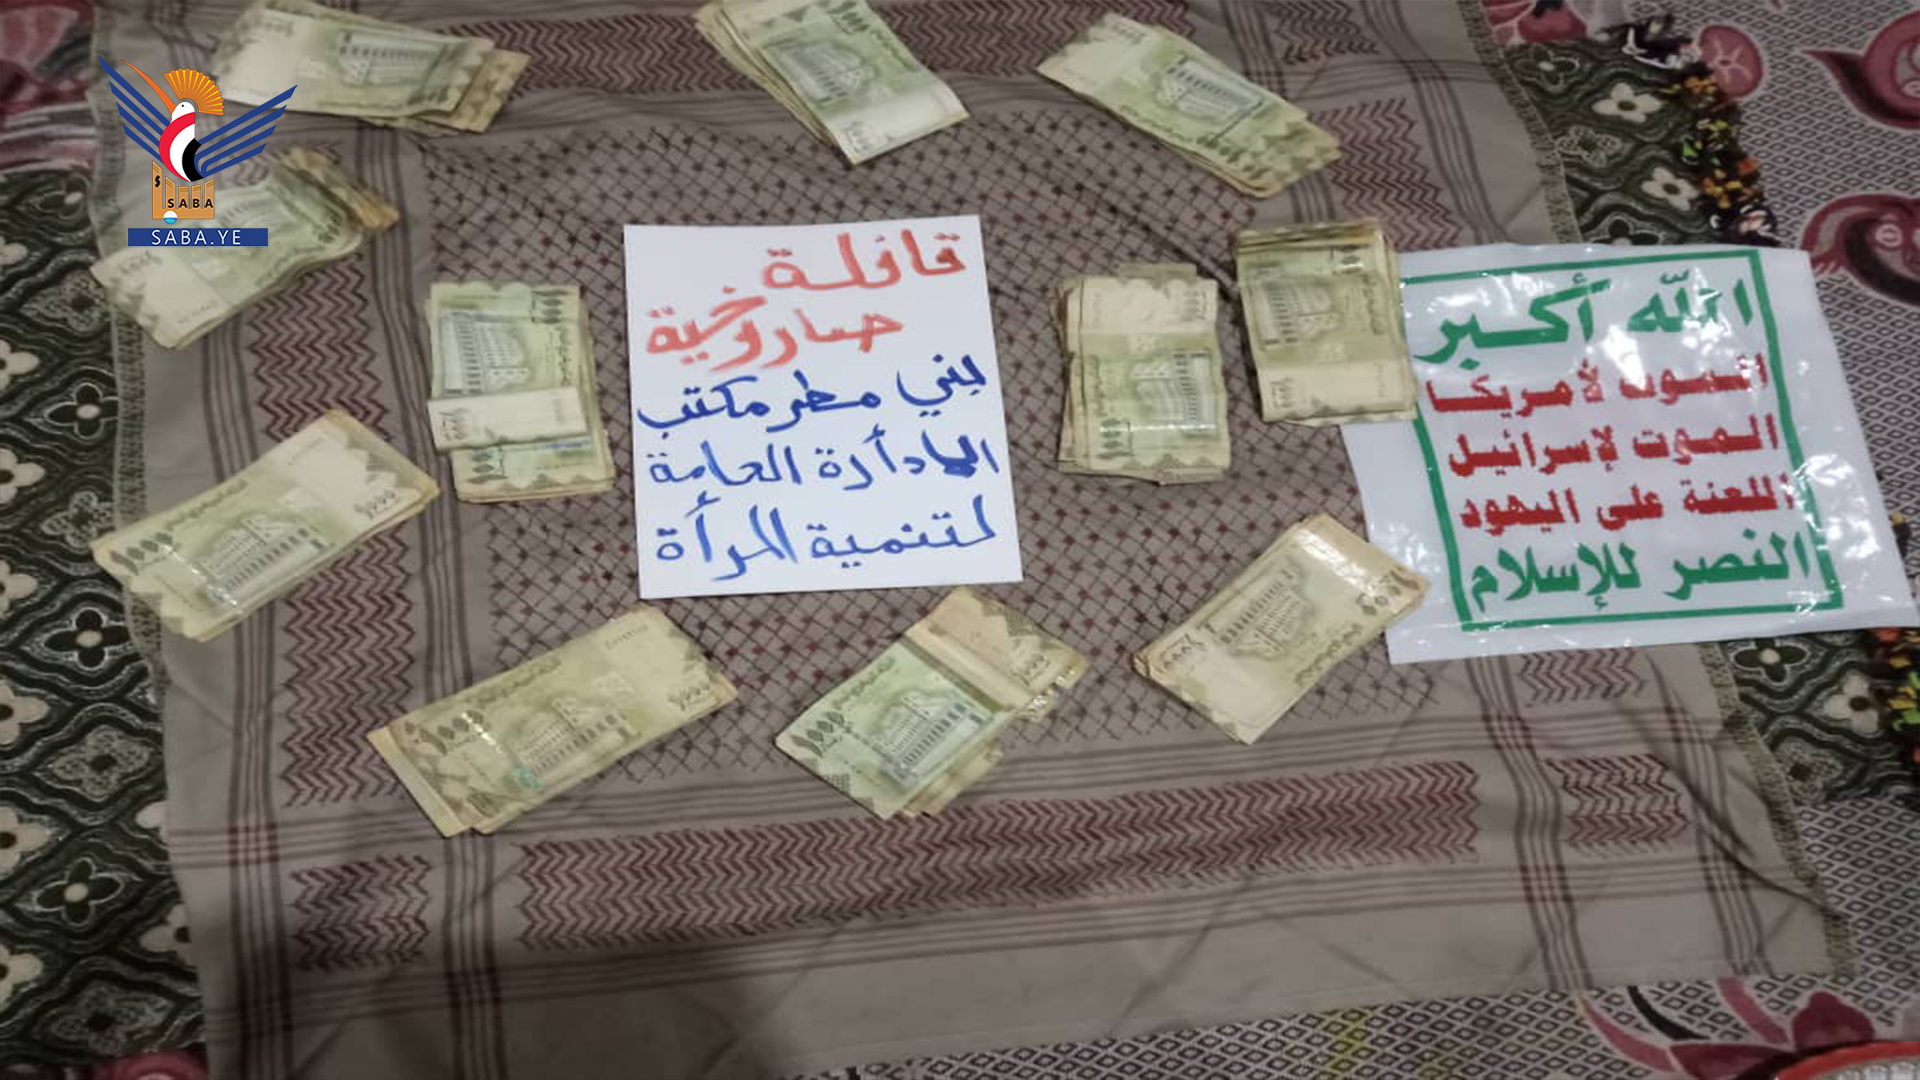 SABA
SABA.YE
قافلة
صاروخية
بني مطر مكتب
الادأرة العامة
لتنمية المرأة
الله أكبر
الموت لأمريكا
الموت لإسرائيل
اللعنة على اليهود
النصر للإسلام
1000
1000
1000